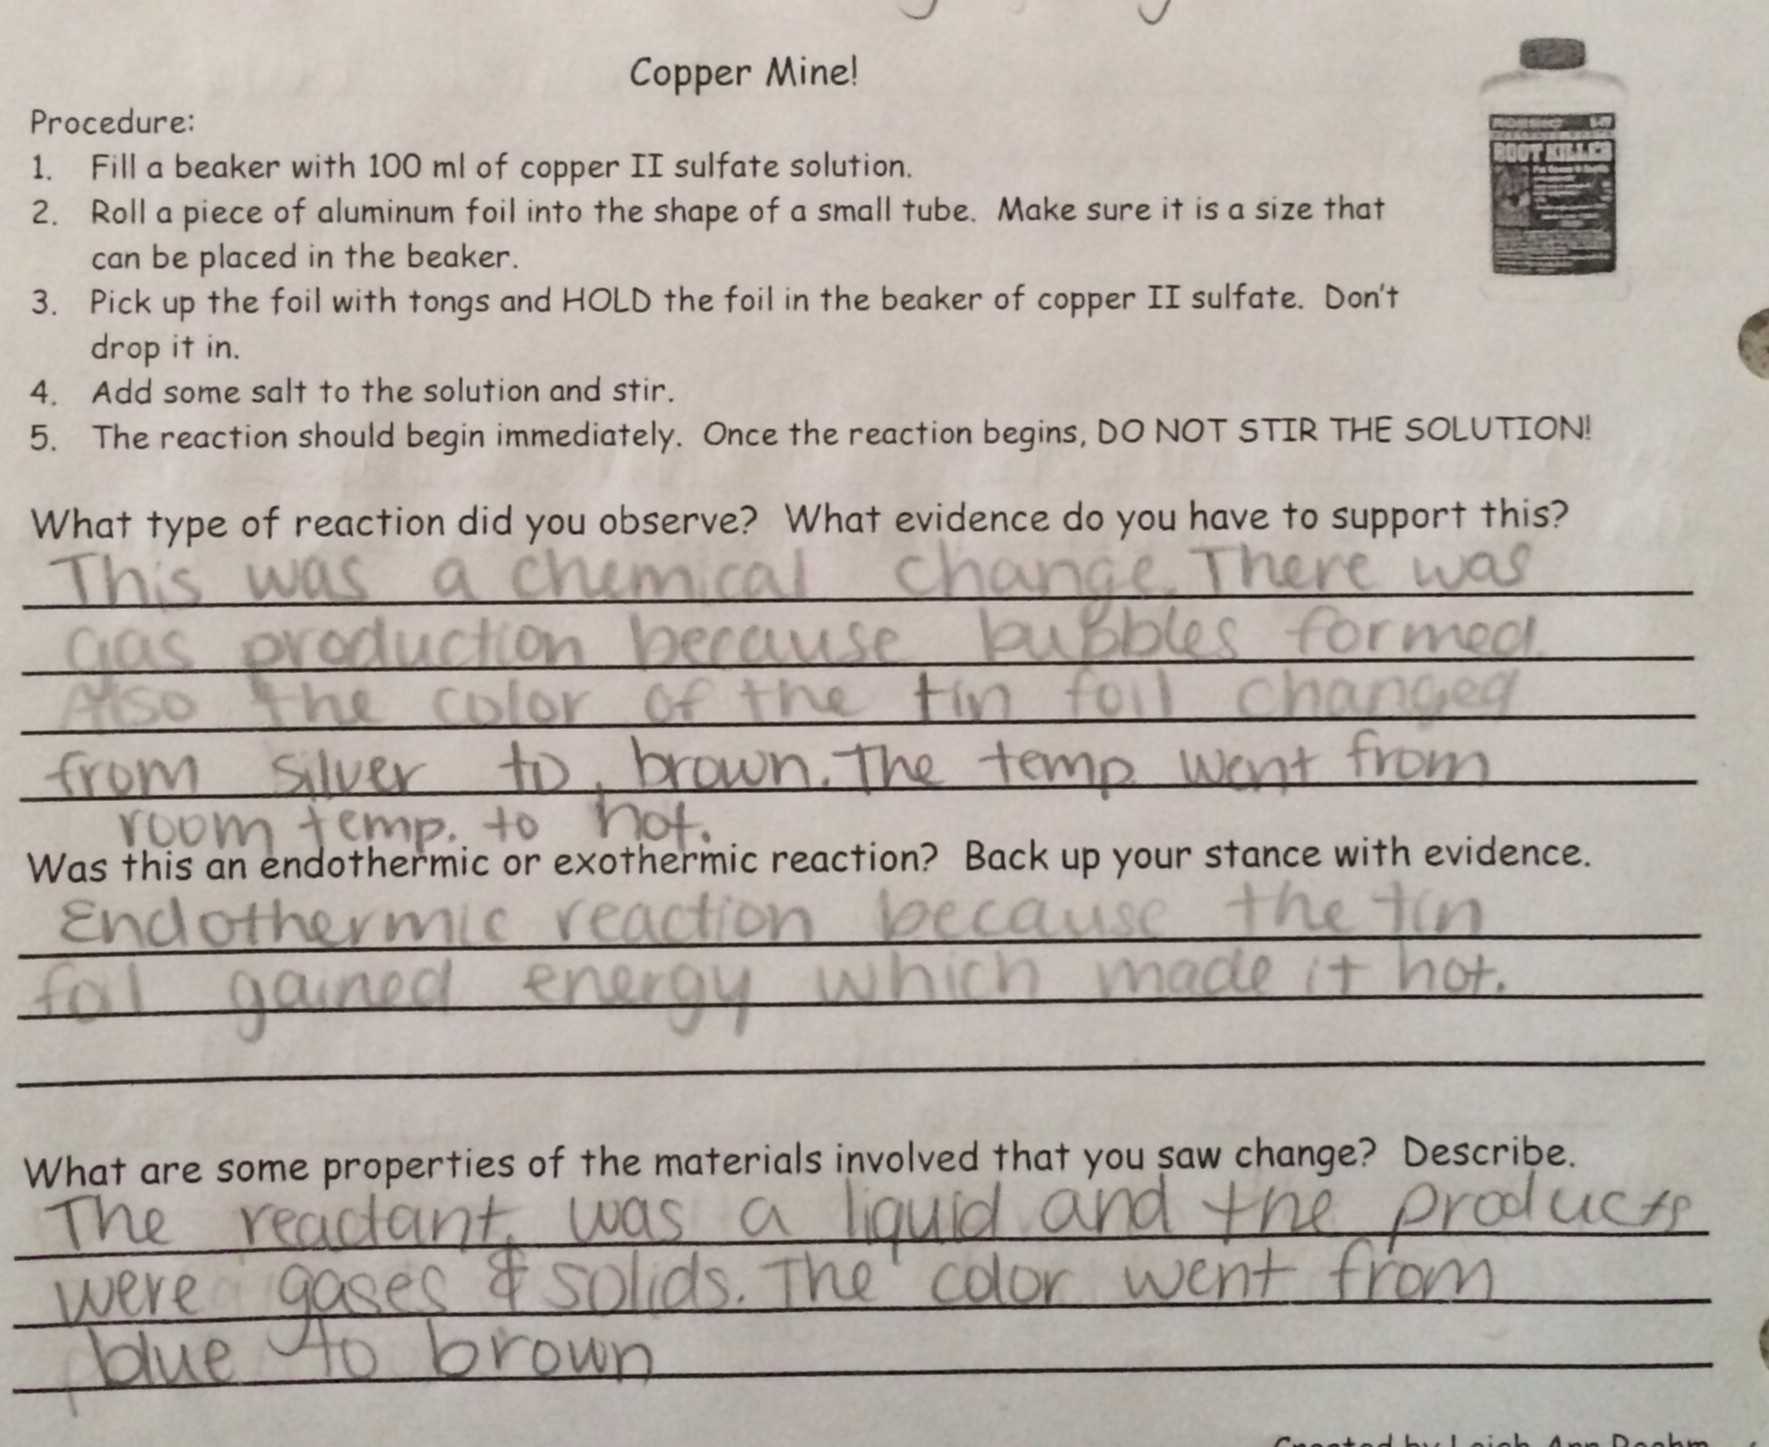 Copper Mine!
ROOT KILLER
Procedure:
1. Fill a beaker with 100 ml of copper II sulfate solution.
2. Roll a piece of aluminum foil into the shape of a small tube. Make sure it is a size that
can be placed in the beaker.
3. Pick up the foil with tongs and HOLD the foil in the beaker of copper II sulfate. Don't
drop it in.
4. Add some salt to the solution and stir.
5. The reaction should begin immediately. Once the reaction begins, DO NOT STIR THE SOLUTION!
What type of reaction did you observe? What evidence do you have to support this?
This was a chemical change. There was
gas production because bubbles formed.
Also the color of the tin foil changed
from silver to brown. The temp went from
room temp. to hot.
Was this an endothermic or exothermic reaction? Back up your stance with evidence.
Endothermic reaction because the tin
foil gained energy which made it hot.
What are some properties of the materials involved that you saw change? Describe.
The reactant was a liquid and the products
were gases & solids. The color went from
blue to brown